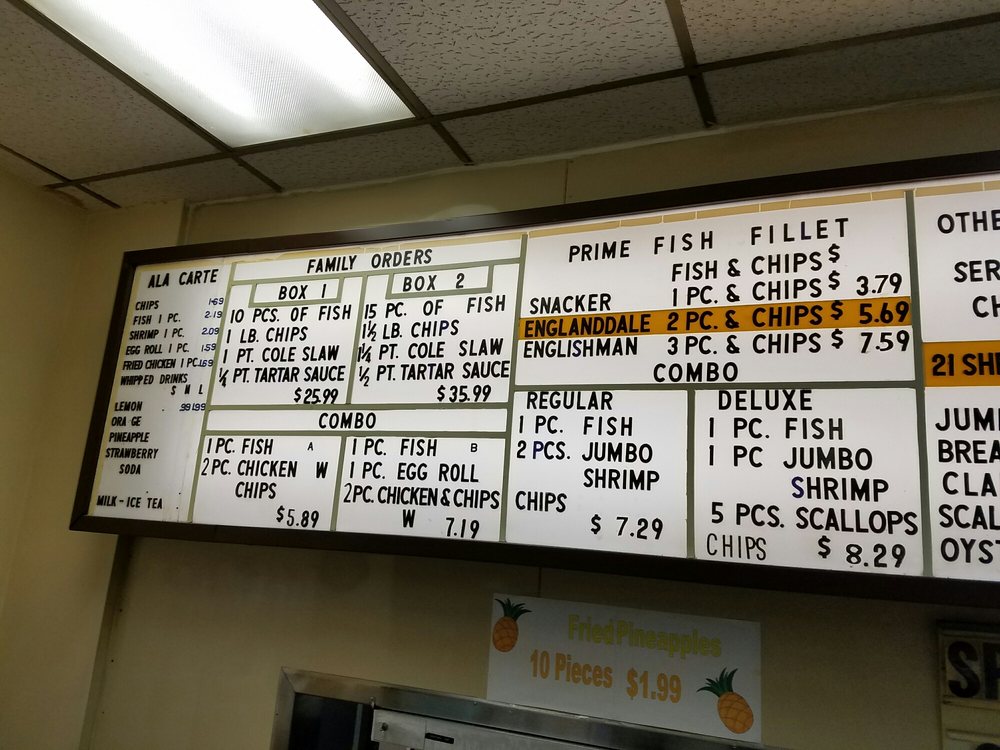 ALA CARTE
CHIPS 1.69
FISH 1 PC. 2.19
SHRIMP 1 PC. 2.09
EGG ROLL 1 PC. 1.59
FRIED CHICKEN 1 PC. 1.69
WHIPPED DRINKS
S M L
LEMON .99 1.99
ORA GE
PINEAPPLE
STRAWBERRY
SODA
MILK - ICE TEA
FAMILY ORDERS
BOX 1
10 PCS. OF FISH
1 LB. CHIPS
1 PT. COLE SLAW
¼ PT. TARTAR SAUCE
$25.99
BOX 2
15 PC. OF FISH
1½ LB. CHIPS
1¼ PT. COLE SLAW
½ PT. TARTAR SAUCE
$35.99
COMBO
1 PC. FISH A
2 PC. CHICKEN W
CHIPS
$5.89
1 PC. FISH B
1 PC. EGG ROLL
2 PC. CHICKEN & CHIPS
W 7.19
PRIME FISH FILLET
FISH & CHIPS $
SNACKER 1 PC. & CHIPS $ 3.79
ENGLANDDALE 2 PC. & CHIPS $ 5.69
ENGLISHMAN 3 PC. & CHIPS $ 7.59
COMBO
REGULAR
1 PC. FISH
2 PCS. JUMBO
SHRIMP
CHIPS
$ 7.29
DELUXE
1 PC. FISH
1 PC JUMBO
SHRIMP
5 PCS. SCALLOPS
CHIPS $ 8.29
OTHE
SER
CH
21 SH
JUM
BREA
CLA
SCAL
OYS
Fried Pineapples
10 Pieces $1.99
SP